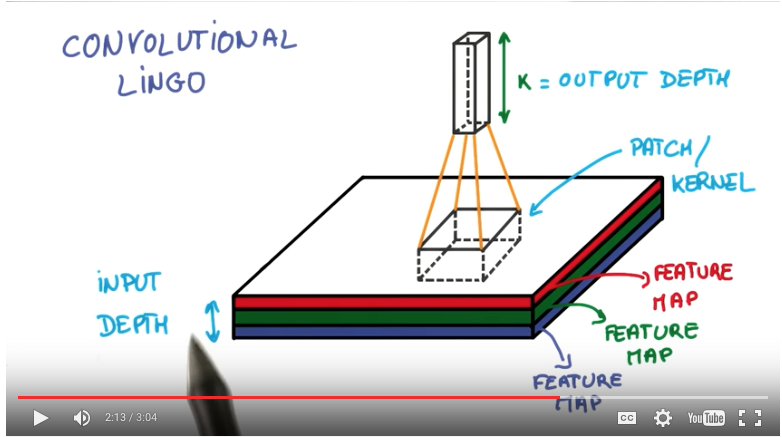 CONVOLUTIONAL
LINGO
K = OUTPUT DEPTH
PATCH/
KERNEL
INPUT
DEPTH
FEATURE
MAP
FEATURE
MAP
FEATURE
MAP
2:13 / 3:04
CC
YouTube